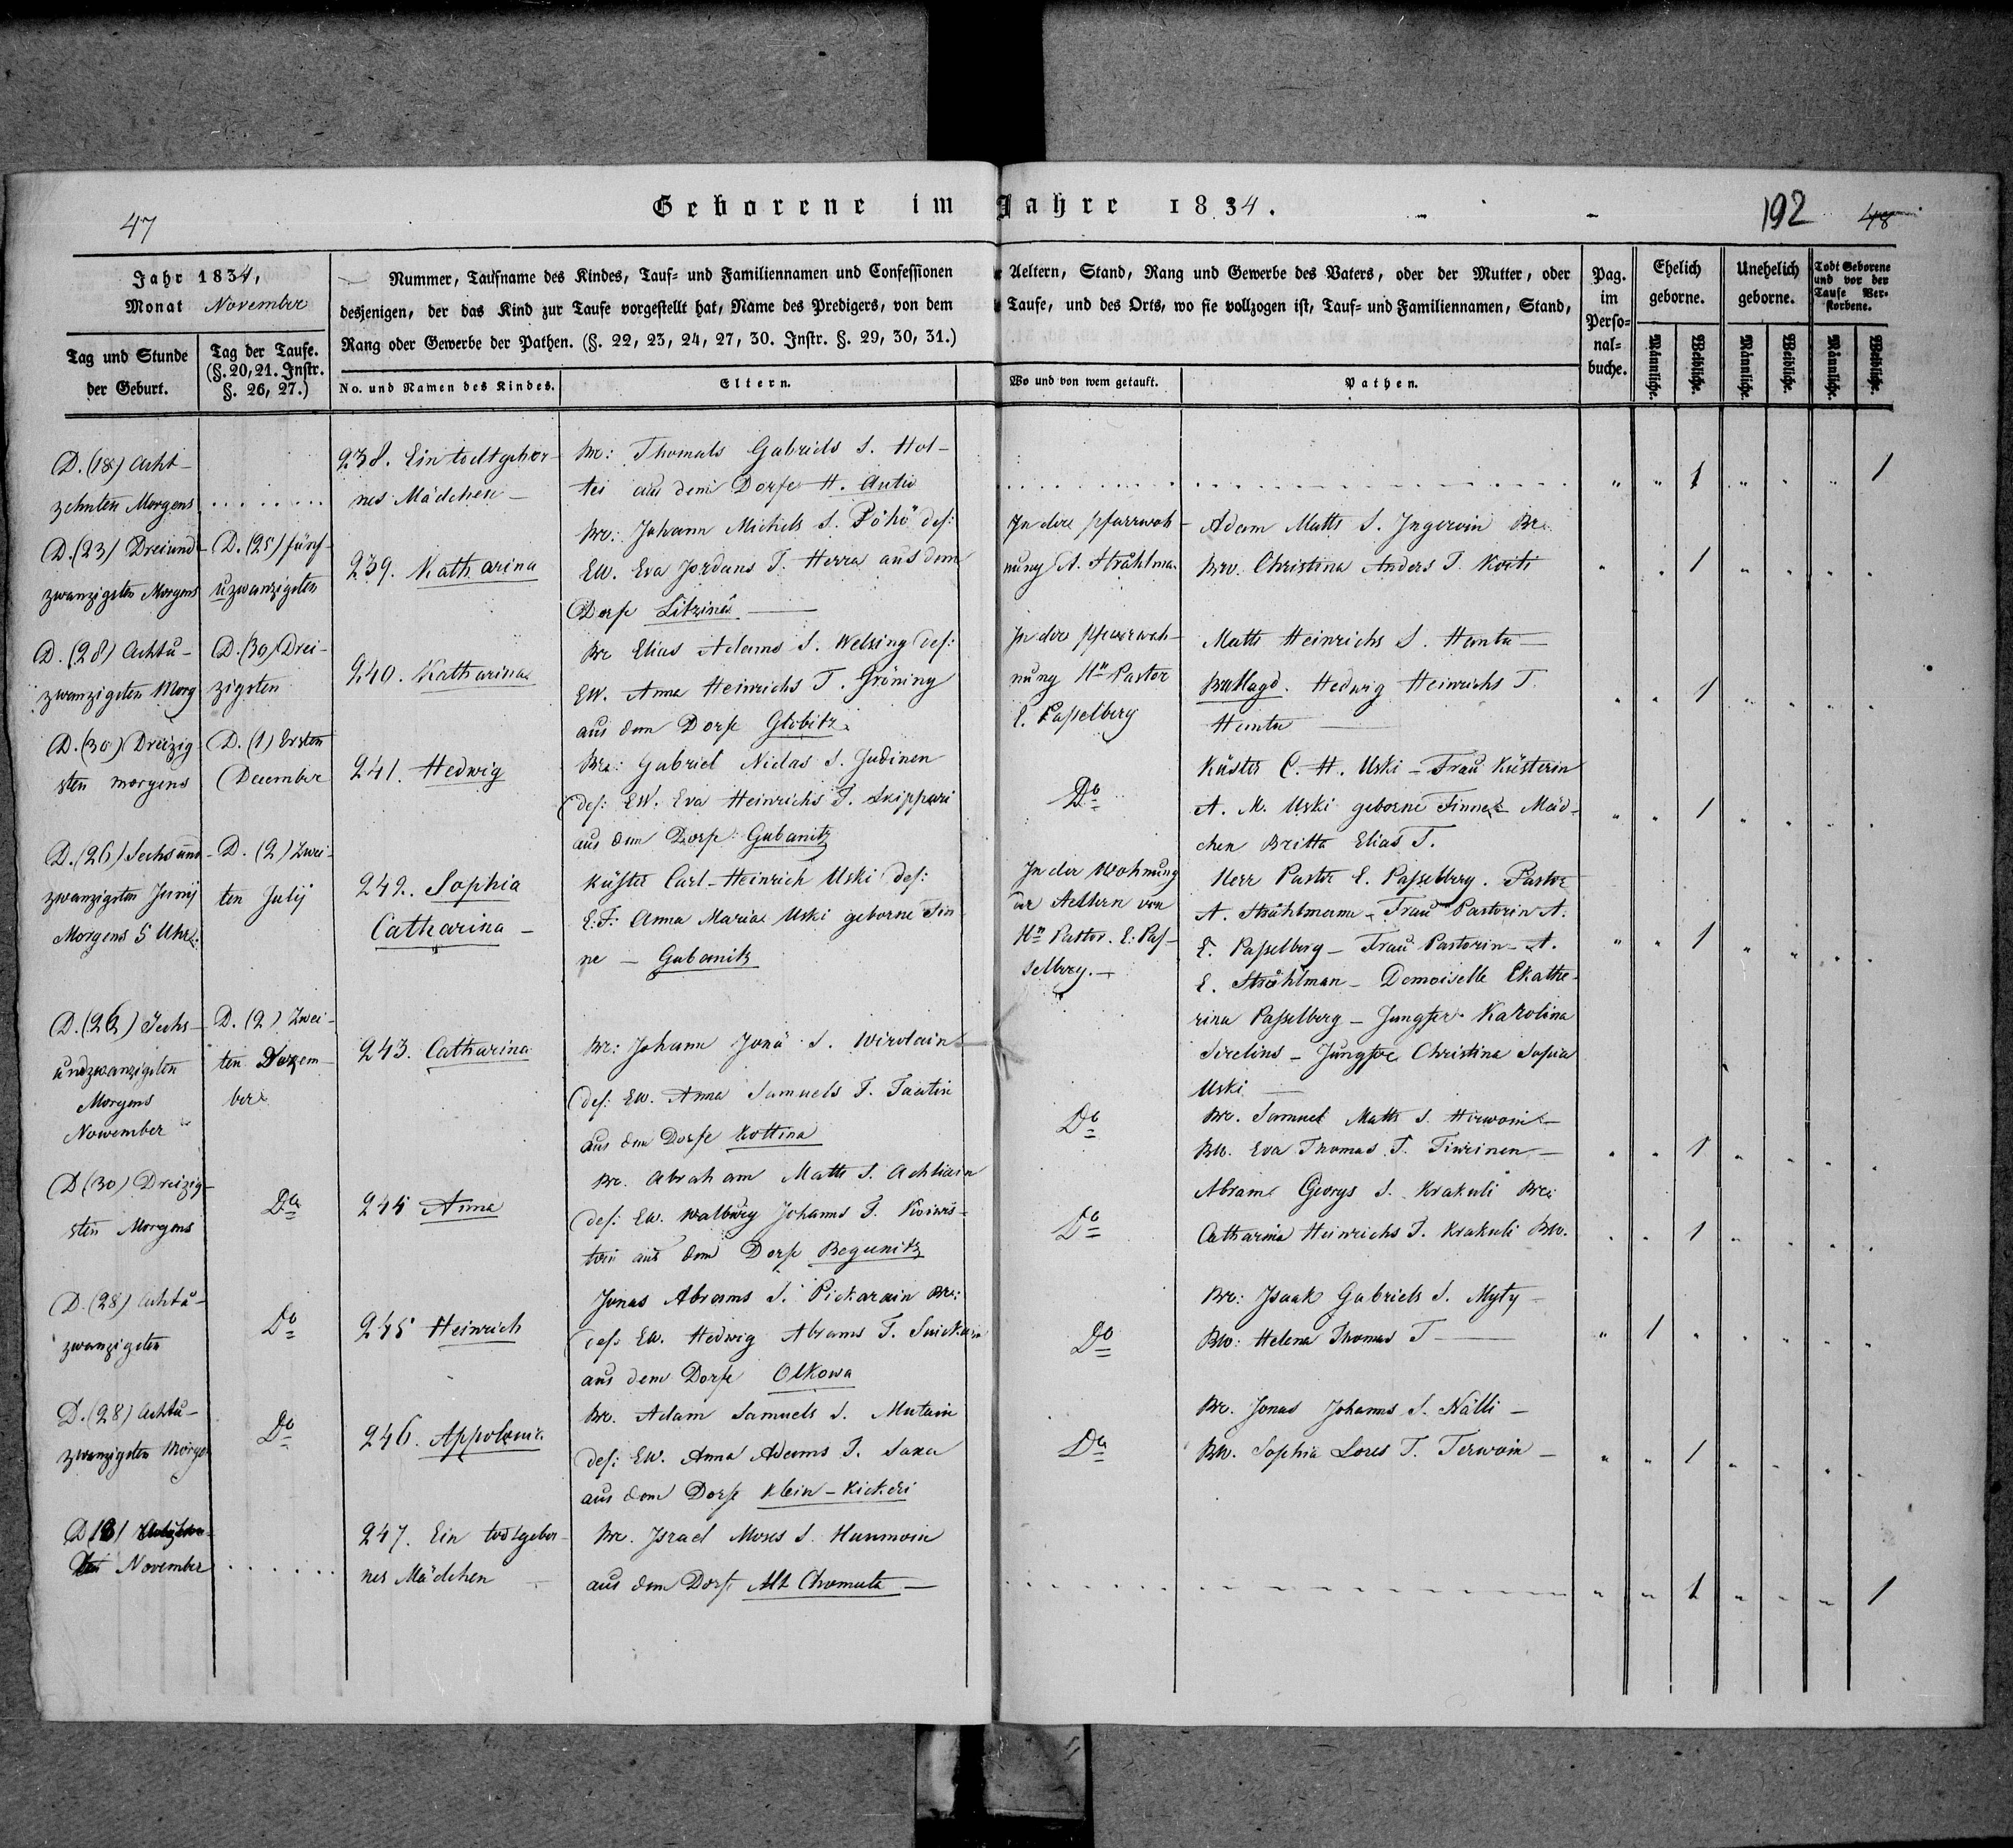 Geborene im Jahre 1834.
47
192
48
Jahr 1834,
Monat November
Tag und Stunde
der Geburt.
Tag der Taufe.
(§. 20, 21. Instr.
§. 26, 27.)
Nummer, Taufname des Kindes, Tauf- und Familiennamen und Confessionen
desjenigen, der das Kind zur Taufe vorgestellt hat, Name des Predigers, von dem
Rang oder Gewerbe der Pathen. (§. 22, 23, 24, 27, 30. Instr. §. 29, 30, 31.)
No. und Namen des Kindes.
Eltern.
Aeltern, Stand, Rang und Gewerbe des Vaters, oder der Mutter, oder
Taufe, und des Orts, wo sie vollzogen ist, Tauf- und Familiennamen, Stand,
Wo und von wem getauft.
Pathen.
Pag.
im
Perso-
nal-
buche.
Ehelich
geborne.
Unehelich
geborne.
Todt Geborene
und vor der
Taufe Ver-
storbene.
Männliche.
Weibliche.
Männliche.
Weibliche.
Männliche.
Weibliche.
D. (18) Acht-
zehnten Morgens
238. Ein todtgebor-
nes Mädchen
Br: Thomals Gabriels S. Hol-
tei aus dem Dorfe H. Autio
1 1
D. (23) Dreiund-
zwanzigsten Morgens
D. (25) fünf-
uzwanzigsten
239. Katharina
Br: Johann Michels S. Pöhö des:
EW. Eva Jordans T. Herra aus dem
Dorfe Litzina
In der Pfarrwoh-
nung A. Stråhlman
Adam Matts S. Ingeroin Br:
Brw. Christina Anders T. Koiti
1
D. (28) Achtu-
zwanzigsten Morg
D. (30) Drei-
zigsten
240. Katharina
Br Elias Adams S. Welsing des:
EW. Anna Heinrichs T. Gröning
aus dem Dorfe Globitz
In der Pfarrwoh-
nung Hn Pastor
E. Passelberg
Matts Heinrichs S. Hantu
Br Magd. Hedwig Heinrichs T.
Hantu
1
D. (30) Dreizig
sten morgens
D. (1) Ersten
December
241. Hedwig
Br: Gabriel Niclas S. Judinen
des: EW. Eva Heinrichs T. Skippari
aus dem Dorfe Gubanitz
Do
Küster C. H. Uski - Frau Küsterin
A. M. Uski geborne Finne - Mäd-
chen Britta Elias T.
1
D. (26) Sechsund-
zwanzigsten Junij
Morgens 5 Uhr.
D. (2) Zwei-
ten Julij
242. Sophia
Catharina
Küster Carl-Heinrich Uski des:
E.F. Anna Maria Uski geborne Fin
ne - Gubanitz
In der Wohnung
der Aeltern von
Hn Pastor. E. Pas-
selberg.
Herr Pastor E. Passelberg. Pastor
A. Stråhlmann - Frau Pastorin A.
E. Passelberg - Frau Pastorin A.
E. Stråhlman - Demoiselle Ekathe-
rina Passelberg - Jungfer Karolina
Sirelius - Jungfer Christina Sofia
Uski
1
D. (26) Sechs-
undzwanzigsten
Morgens
November
D. (2) Zwei-
ten Dezem-
ber
243. Catharina
Br: Johann Jonä S. Wirolain
des: EW. Anna Samuels T. Tautin
aus dem Dorfe Kottina
Do
Br. Samuel Matts S. Hirwoin
BW. Eva Thomas T. Tiwinen
1
D. (30) Dreizig-
sten Morgens
Do
244 Anna
Br. Abraham Matts S. Achiain
des: EW. Walburg Johanns T. Koiwis-
toin aus dem Dorfe Begunitz
Do
Abram Georgs S. Krakuli Br:
Catharina Heinrichs T. Krakuli BW.
1
D. (28) Achtu-
zwanzigsten
Do
245 Heinrich
Jonas Abrams S. Pickarain Br:
des EW. Hedwig Abrams T. Suickain
aus dem Dorfe Olkowa
Do
Br: Isaak Gabriels S. Myty
BW: Helena Thomas T
1
D. (28) Achtu-
zwanzigsten Morgen
Do
246. Appolonia
Br. Adam Samuels S. Mutain
des: EW. Anna Adams T. Saxa
aus dem Dorfe Klein-Kickeri
Do
Br. Jonas Johanns S. Nälli
BW. Sophia Lores T. Terwoin
1
November
247. Ein todtgebor-
nes Mädchen
Br. Israel Moses S. Hunnoin
aus dem Dorfe Alt Chomuta
1 1